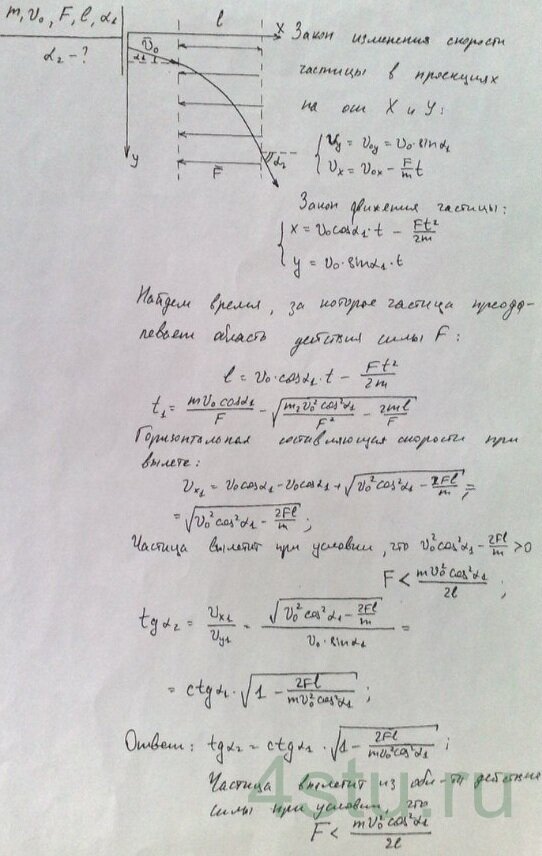 m, v₀, F, l, α₁
α₂ - ?
l
X
v̄₀
α₁
α₂
F̄
y
Закон изменения скорости
частицы в проекциях
на оси X и Y:
{ v_y = v_oy = v₀·sinα₁
v_x = v_ox - F/m t
Закон движения частицы:
{ x = v₀cosα₁·t - Ft²/2m
y = v₀·sinα₁·t
Найдем время, за которое частица преодо-
левает область действия силы F:
l = v₀·cosα₁·t - Ft²/2m
t₁ = mv₀cosα₁/F - √(m²v₀²cos²α₁/F² - 2ml/F)
Горизонтальная составляющая скорости при
вылете:
v_x1 = v₀cosα₁ - v₀cosα₁ + √(v₀²cos²α₁ - 2Fl/m) =
= √(v₀²cos²α₁ - 2Fl/m);
Частица вылетит при условии, что v₀²cos²α₁ - 2Fl/m > 0
F < mv₀²cos²α₁/2l;
tgα₂ = v_x1/v_y1 = √(v₀²cos²α₁ - 2Fl/m)/v₀·sinα₁ =
= ctgα₁·√(1 - 2Fl/mv₀²cos²α₁);
Ответ: tgα₂ = ctgα₁·√(1 - 2Fl/mv₀²cos²α₁);
Частица вылетит из обл-ти действие
силы при условии, что
F < mv₀²cos²α₁/2l
4stu.ru